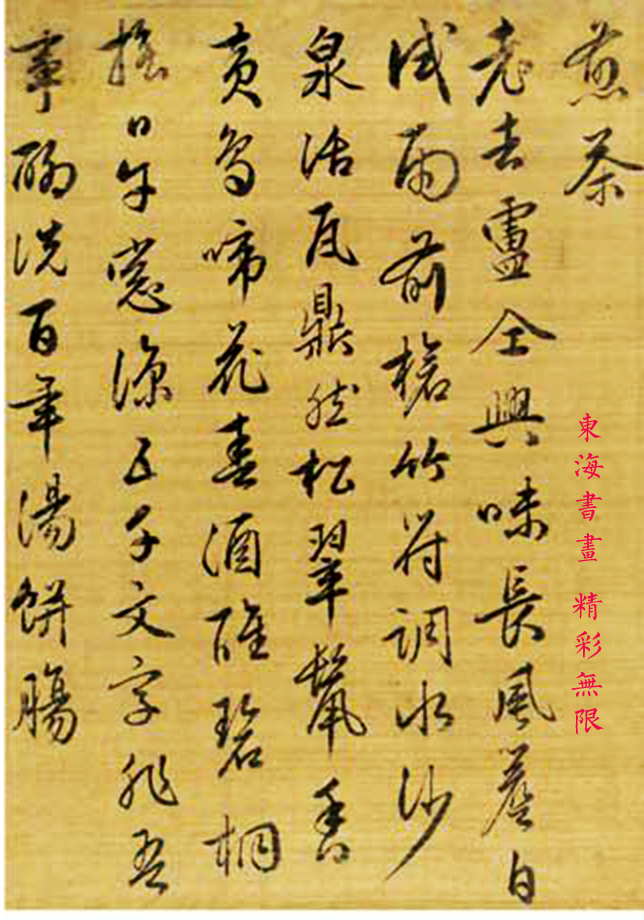 煎茶
老去盧仝興味長風簷自
試雨前槍竹符調水沙
泉活瓦鼎然松翠鬣香
黃鳥啼花春酒醒碧桐
搖日午窻涼五千文字非吾
事聊洗百年湯餅腸
東海書畫 精彩無限